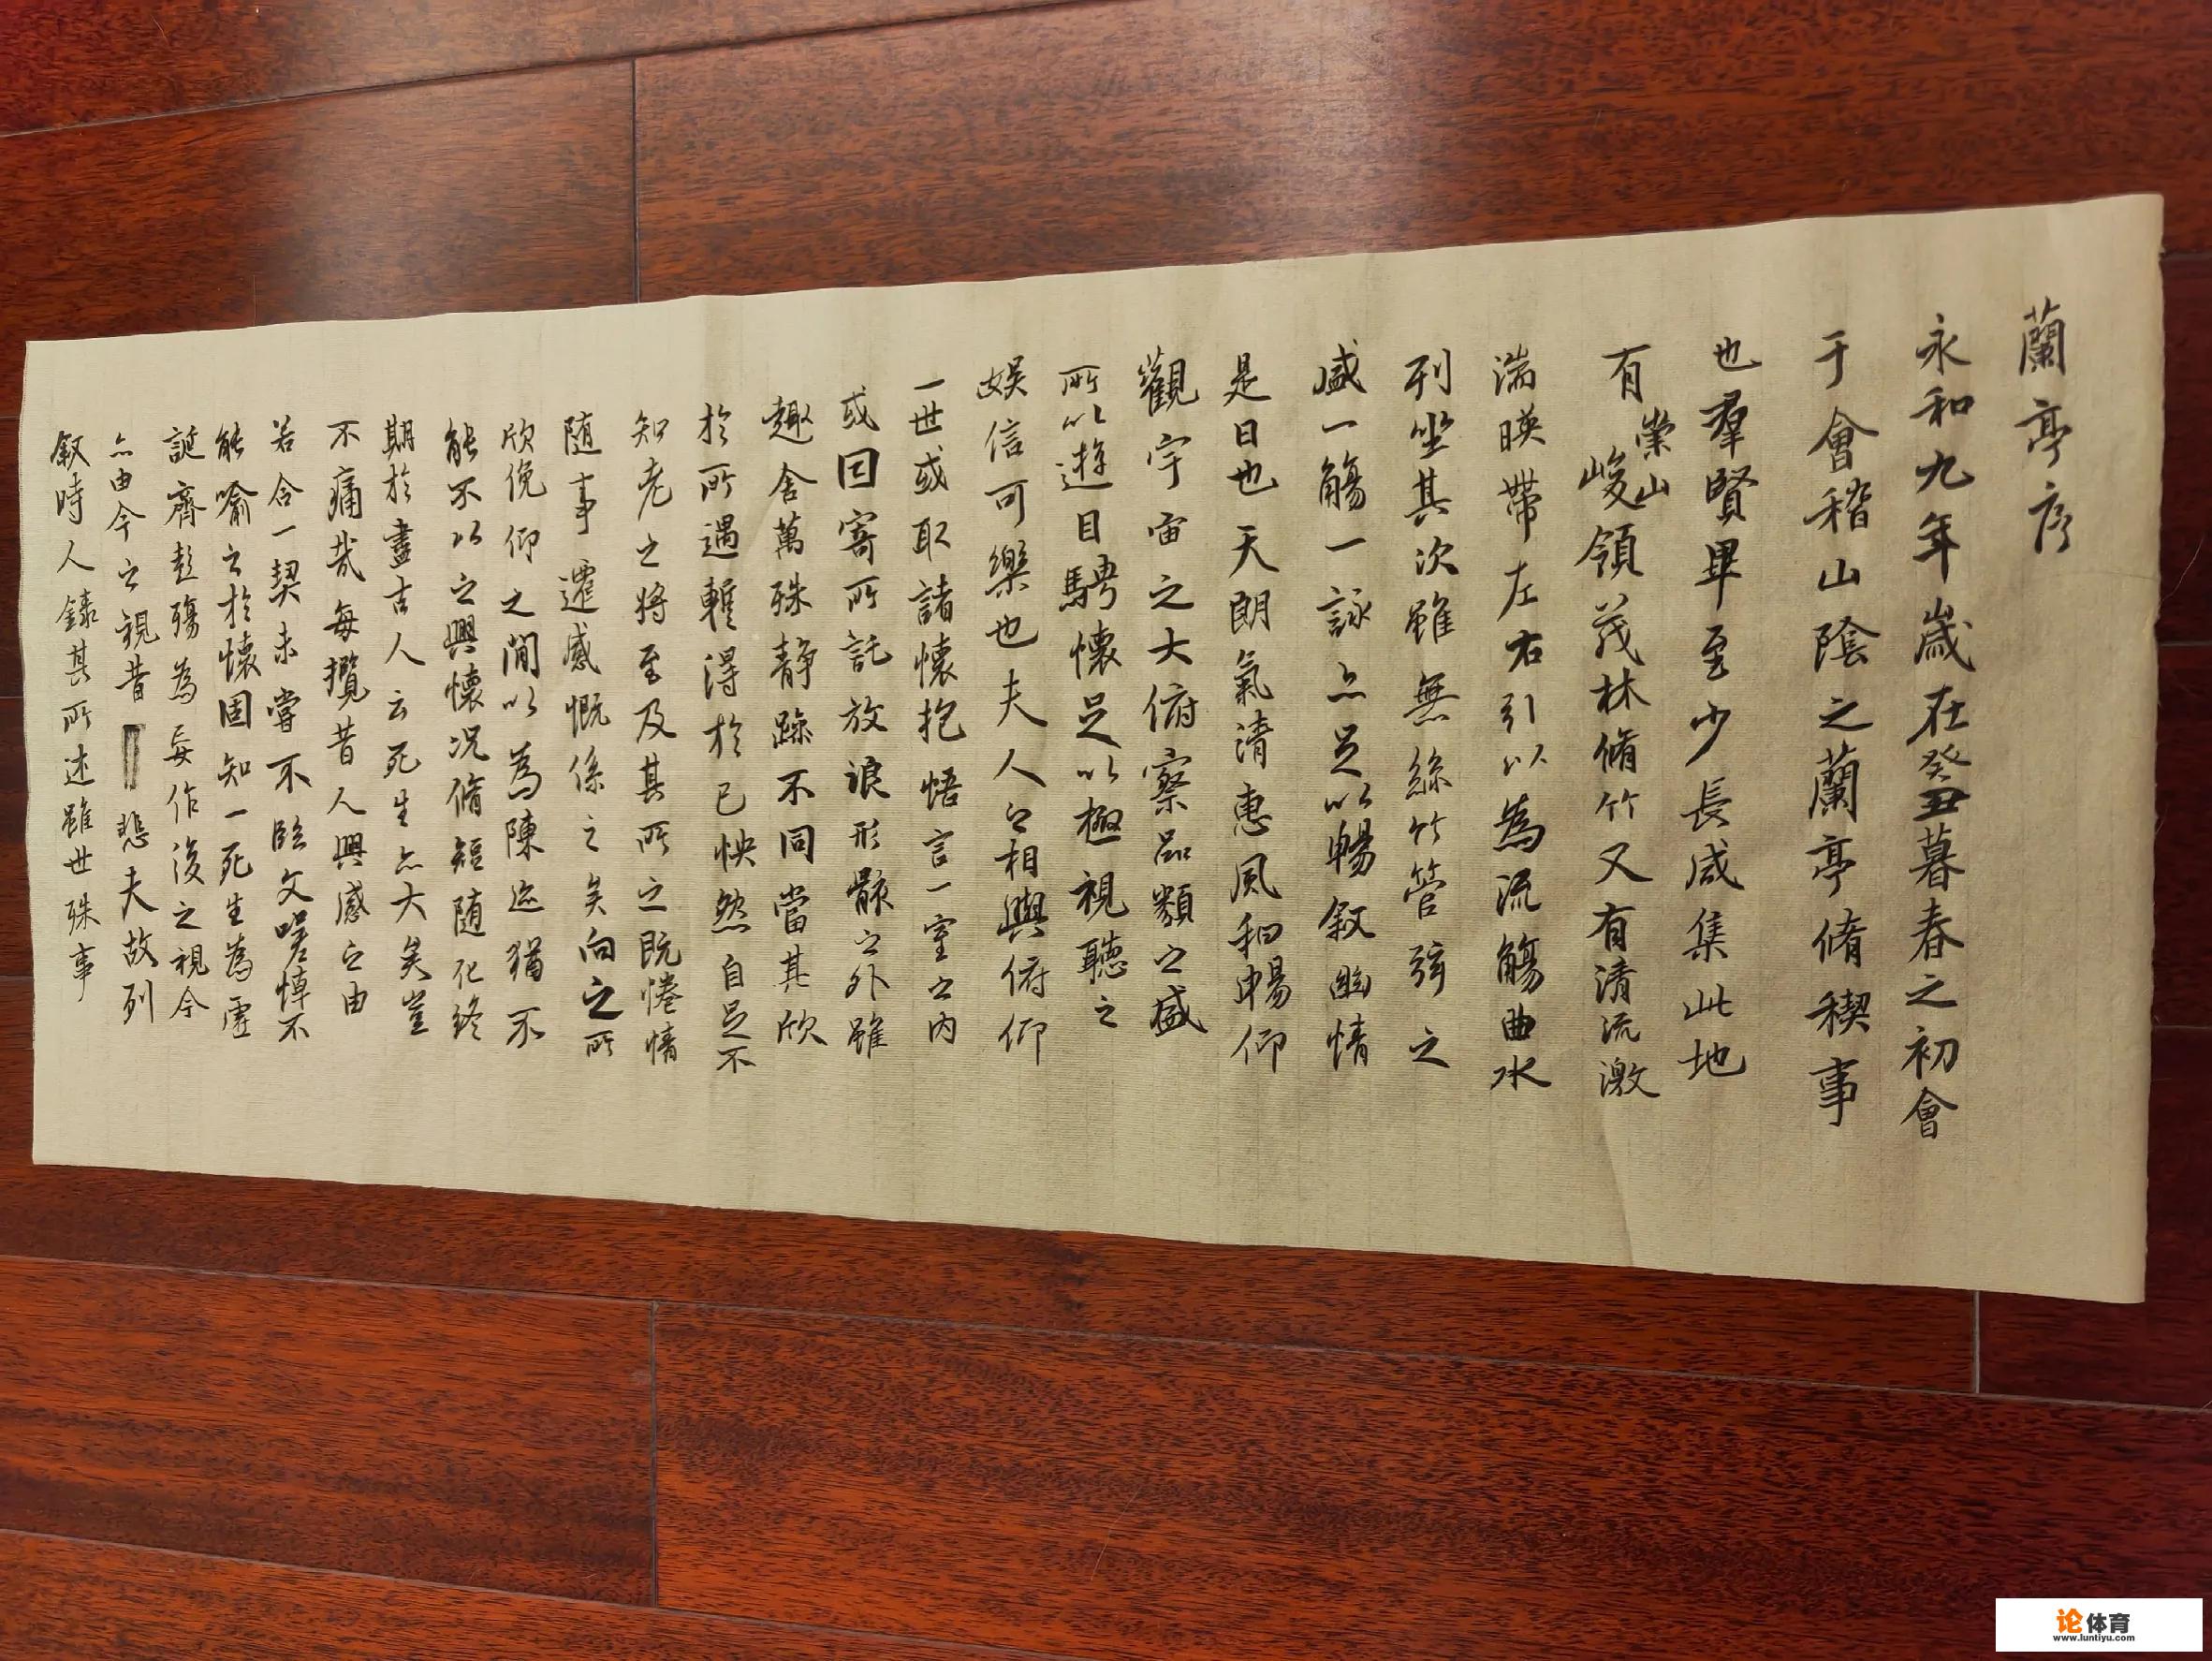 蘭亭序
永和九年歲在癸丑暮春之初會
于會稽山陰之蘭亭脩稧事
也羣賢畢至少長咸集此地
有崇山峻領茂林脩竹又有清流激
湍暎帶左右引以為流觴曲水
列坐其次雖無絲竹管弦之
盛一觴一詠亦足以暢叙幽情
是日也天朗氣清惠風和暢仰
觀宇宙之大俯察品類之盛
所以遊目騁懷足以極視聽之
娛信可樂也夫人之相與俯仰
一世或取諸懷抱悟言一室之內
或因寄所託放浪形骸之外雖
趣舍萬殊靜躁不同當其欣
於所遇蹔得於己怏然自足不
知老之將至及其所之既惓情
随事遷感慨係之矣向之所
欣俛仰之閒以為陳迹猶不
能不以之興懷況脩短随化終
期於盡古人云死生亦大矣豈
不痛哉每攬昔人興感之由
若合一契未嘗不臨文嗟悼不
能喻之於懷固知一死生為虛
誕齊彭殤為妄作後之視今
亦由今之視昔悲夫故列
叙時人錄其所述雖世殊事
论体育
www.luntiyu.com